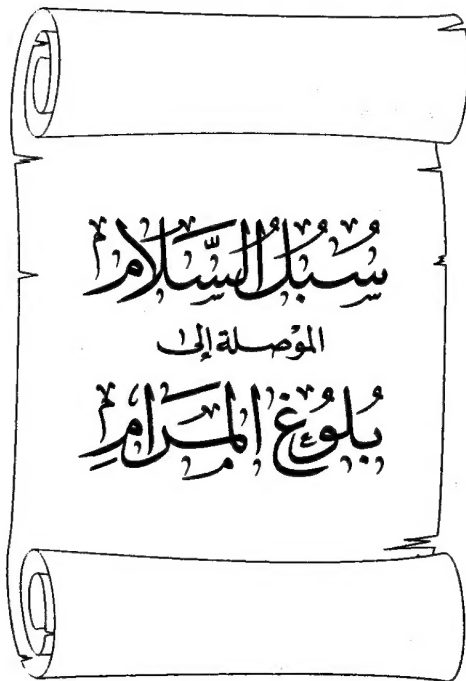 سُبُلُ السَّلَامِ
الموْصلة إلى
بُلُوغُ المَرَامِ